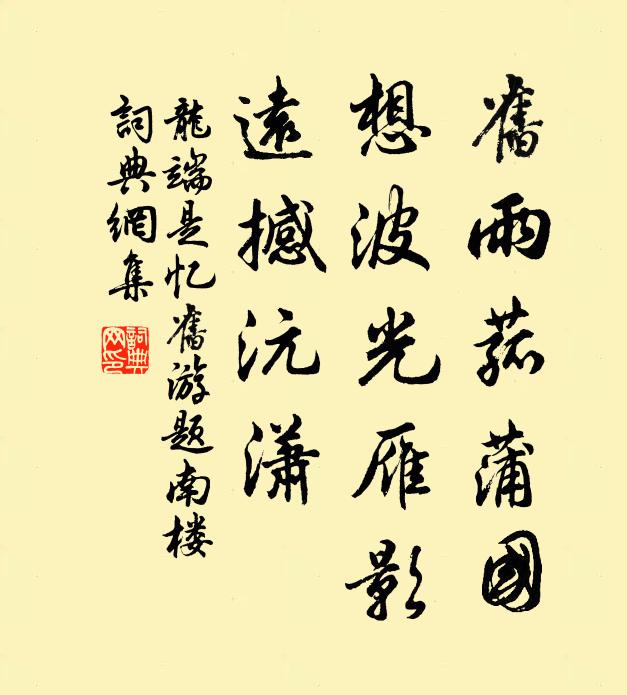 舊雨菰蒲國
想波光雁影
遠撼沅瀟
龍端是忆舊游题南楼
詞典網集
詞典
网印